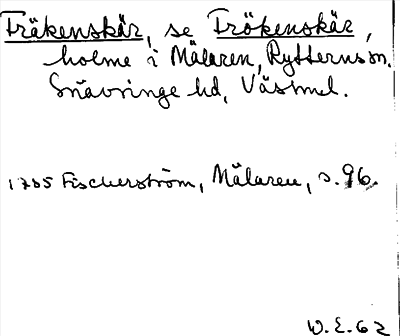 Fräkenskär, se Frökenskär,
holme i Mälaren, Rytterns sn.
Snävringe hd, Västml.
1785 Fischerström, Mälaren, s. 96.
W.E. 62